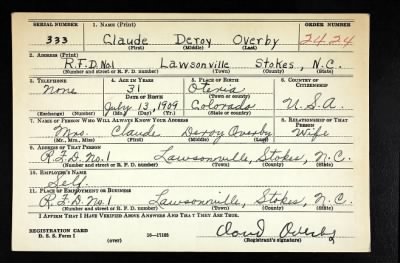 SERIAL NUMBER 1. NAME (Print) ORDER NUMBER
333 Claude Deroy Overby 2424
(First) (Middle) (Last)
2. ADDRESS (Print)
R.F.D. No1 Lawsonville Stokes, N.C.
(Number and street or R. F. D. number) (Town) (County) (State)
3. TELEPHONE 4. AGE IN YEARS 5. PLACE OF BIRTH 6. COUNTRY OF CITIZENSHIP
None 31 Oteria
DATE OF BIRTH (Town or county)
July 13, 1909 Colorado U.S.A.
(Exchange) (Number) (Mo.) (Day) (Yr.) (State or country)
7. NAME OF PERSON WHO WILL ALWAYS KNOW YOUR ADDRESS 8. RELATIONSHIP OF THAT PERSON
Mrs. Claude Deroy Overby Wife
(Mr., Mrs., Miss) (First) (Middle) (Last)
9. ADDRESS OF THAT PERSON
R.F.D. No. 1 Lawsonville, Stokes, N.C.
(Number and street or R. F. D. number) (Town) (County) (State)
10. EMPLOYER'S NAME
Self.
11. PLACE OF EMPLOYMENT OR BUSINESS
R.F.D. No. 1 Lawsonville, Stokes, N.C.
(Number and street or R. F. D. number) (Town) (County) (State)
I AFFIRM THAT I HAVE VERIFIED ABOVE ANSWERS AND THAT THEY ARE TRUE.
REGISTRATION CARD
D. S. S. Form 1 (over) 16—17105 Cloud Overby
(Registrant's signature)